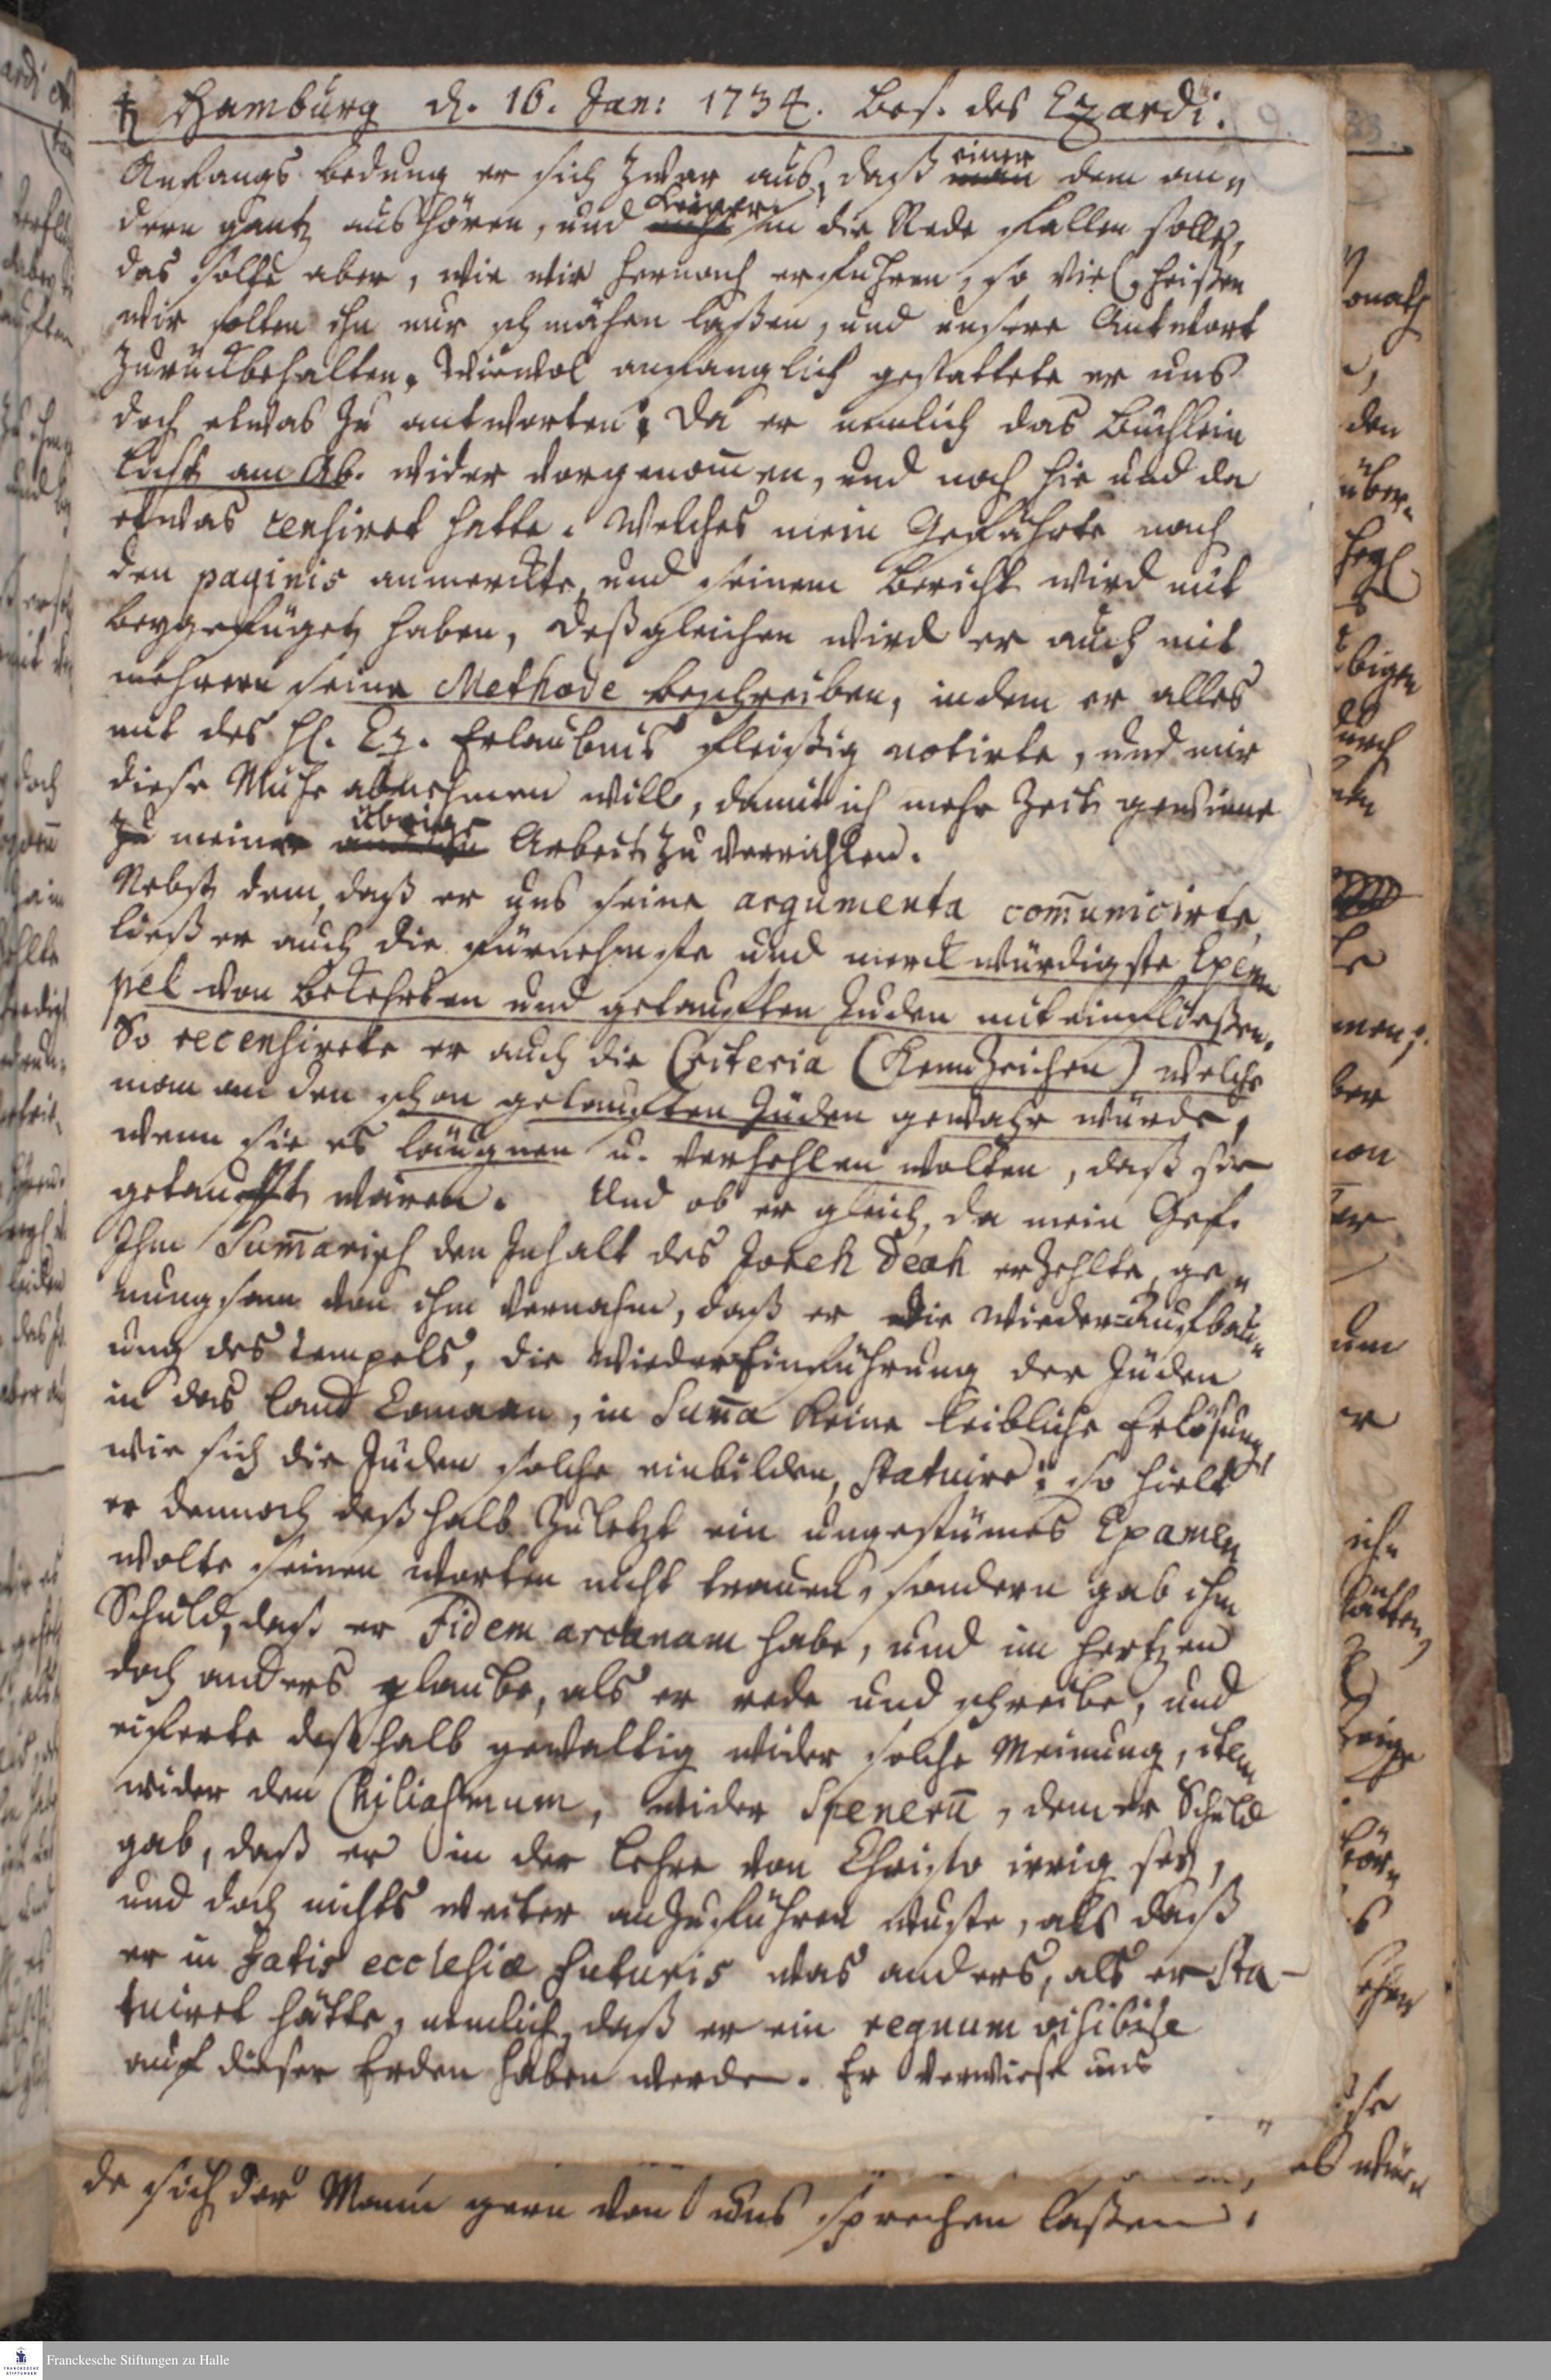 ♄ Hamburg d. 16. Jan: 1734. Bes. des Ezardi.
Anfangs bedung er sich zwar aus, daß einer dem an„
dern gantz aushören, und keiner in die Rede fallen solle,
das solte aber, wie wir hernach erfuhren, so viel heißen
wir solten ihn nur schmähen laßen, und unsere Antwort
zurückbehalten. Wiewol anfänglich gestattete er uns
doch etwas zu antworten; Da er nemlich das Büchlein
Licht am Ab. wider vorgenom̄en, und noch hie und da
etwas censiret hatte. Welches mein Gefährte nach
den paginis anmerckte, und seinem Bericht wird mit
beygefüget haben, deßgleichen wird er auch mit
mehrern seine Methode beschreiben, indem er alles
mit des H. Ez. Erlaubnis fleißig notirte, und mir
diese Mühe abnehmen will, damit ich mehr Zeit gewinne
meine übrige Arbeit zu verrichten.
Nebst dem, daß er uns seine argumenta com̄unicirte,
ließ er auch die fürnehmste und merckwürdigste Exem„
pel von bekehrten und getaufften Juden mit einfließen.
So recensirete er auch die Criteria (Kennzeichen) welche
man an den schon getaufften Jüden gewahr würde,
wenn sie es läugnen u. verhehlen wolten, daß sie
getaufft wären. Und ob er gleich, da mein Gef.
Ihm Sum̄arisch den Inhalt des Joreh Deah erzehlte, ge„
nungsam von ihm vernahm, daß er die Wieder-Aufbau„
ung des Tempels, die WiederEinführung der Jüden
in das Land Canaan, in Sum̄a keine leibliche Erlösung,
wie sich die Juden solche einbilden, statuire; so hielt
er dennoch deßhalb zuletzt ein ungestümes Examen
wolte seinen Worten nicht trauen, sondern gab ihm
Schuld, daß er Fidem arcanam habe, und im Hertzen
doch anders glaube, als er rede und schreibe, und
eiferte deßhalb gewaltig wider solche Meinung, item
wider den Chiliasmum, wider Spenerū, dem er Schuld
gab, daß er in der Lehre von Christo irrig sey,
und doch nichts weiter anzuführen wuste, als daß
er in Fatis ecclesiæ futuris was anders, als er sta-
tuiret hätte, nemlich, daß er ein regnum visibile
auf dieser Erden haben werde. Er verwiese uns
de sich der Mann gern von uns sprechen laßen.